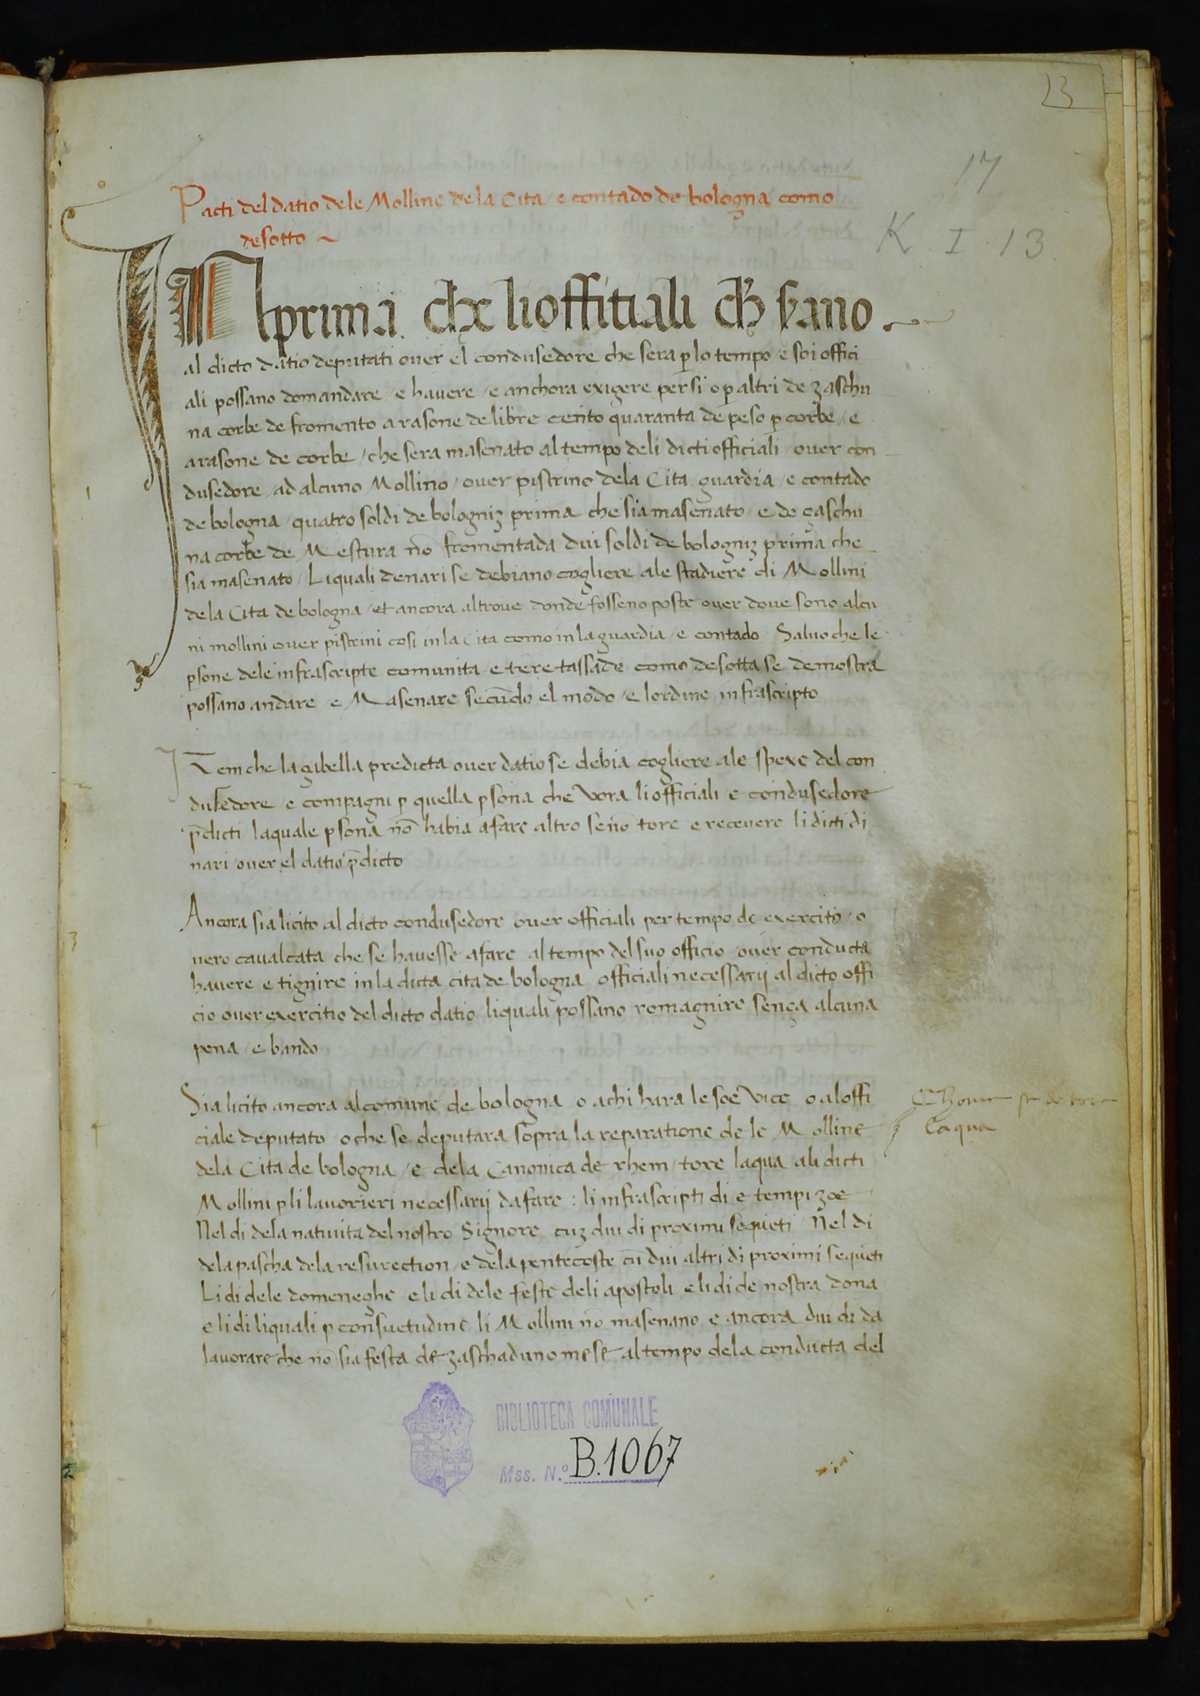 13
17
K. I. 13
Pacti del datio dele Molline dela Cita / e contado de bologna como
desotto ~
IN prima che li offitiali ch sano
al dicto datio deputati over el condusedore che sera p lo tempo e soi offici
ali possano domandare e havere / e anchora exigere per si o p altri de zaschu
na corbe de fromento a rasone de libre cento quaranta de peso p corbe / e
a rasone de corbe / che sera masenato al tempo deli dicti officiali over con
dusedore ad alcuno Mollino / over pistrino dela Cita guardia / e contado
de bologna / quatro soldi de bologniz prima che sia masenato e de çaschu
na corbe de Mestura nō fromentada dui soldi de bologniz prima che
sia masenato / Li quali denari se debiano cogliere ale stadiere di Mollini
de la Cita de bologna / et ancora altrove donde fosseno poste over dove sono alcu
ni mollini over pistrini cosi in la Cita como in la guardia / e contado Salvo che le
psone dele infrascripte comunita e tere tassade como desotta se demostra
possano andare e Masenare secūdo el modo / e lordine infrascripto
Item che la gabella predicta over datio se debia cogliere ale spexe del con
dusedore e compagni p quella psona che vora li officiali e condusedore
p̄dicti laquale psona nō habia a fare altro se nō tore e recevere li dicti di
nari over el datio p̄dicto
Ancora sia licito al dicto condusedore over officiali per tempo de exercito / o
vero cavalcata che se havesse a fare al tempo del suo officio over conducta
havere e tignire in la dicta cita de bologna officiali necessarij al dicto offi
cio over exercitio del dicto datio / li quali possano romagnire sença alcuna
pena / e bando
Sia licito ancora al comune de bologna o a chi hara le soe vice o al offi
ciale deputato / o che se deputara sopra la reparatione de le Molline
dela Cita de bologna / e dela Canonica de rhem / tore laqua ali dicti
Mollini p li lavorieri necessarij da fare : li infrascripti di e tempi zoe
Nel di dela nativita del nostro Signore cuz dui di proximi sequēti Nel di
dela pascha dela resurection / e dela pentecoste cū dui altri di proximi sequēti
Li di dele domeneghe e li di dele feste deli apostoli e li di de nostra dona
e li di li quali p consuetudine li Mollini nō masenano e ancora dui di da
lavorare che nō sia festa de zaschaduno mese al tempo dela conducta del
tore
laqua
BIBLIOTECA COMUNALE
Mss. N.º B.1067